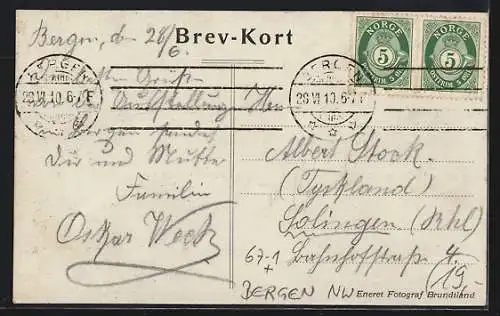 Bergen, den 28/6.
Brev-Kort
NORGE
5
POSTFRIM. 5 ØRE
NORGE
5
POSTFRIM. 5 ØRE
BERGEN
28 VI 10. 6-7 E
BERGEN
28 VI 10. 6-7 E
Ausstellung
Bergen sendet
Dir und Mutter
Familie
Oskar
Albert Stock.
(Tyskland)
Solingen (Rhl)
Bahnhofstraße 4.
67-1
+
19,-
BERGEN NW
Eneret Fotograf Brundtland